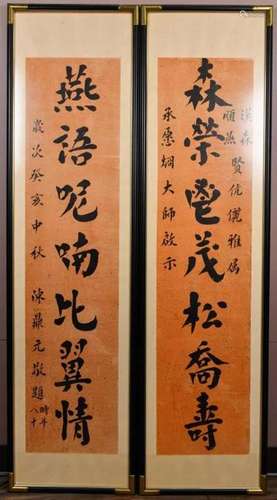 漢森
順燕 賢伉儷雅属
森榮鬯茂松喬壽
承愿烱大師啟示
燕語呢喃比翼情
歲次癸亥中秋 陳鼎元敬題 時年八十